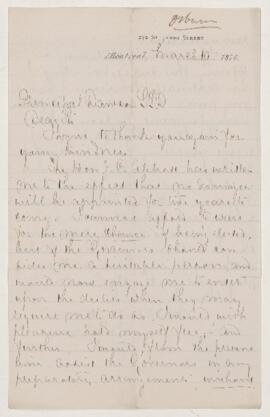 Osborn
272 St James Street
Montreal, March 10 1876
Principal Dawson LLD
Dear Sir
I have to thank you again for
your kindness.
The Hon. F. Oliphant has written
me to the effect that no examiner
will be appointed for two years to
come. I cannot afford to wait
for the mere chance of being elected,
but if the Governors should con
sider me a suitable person, and
would now engage me to enter
upon the duties when they may
require me to do so, I would with
pleasure hold myself free. And
further I would from the present
time assist the Governors in any
preparatory arrangement without